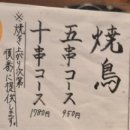 焼鳥
五串コース
950円
十串コース
1780円
※焼き上がり次第
順番に提供します。